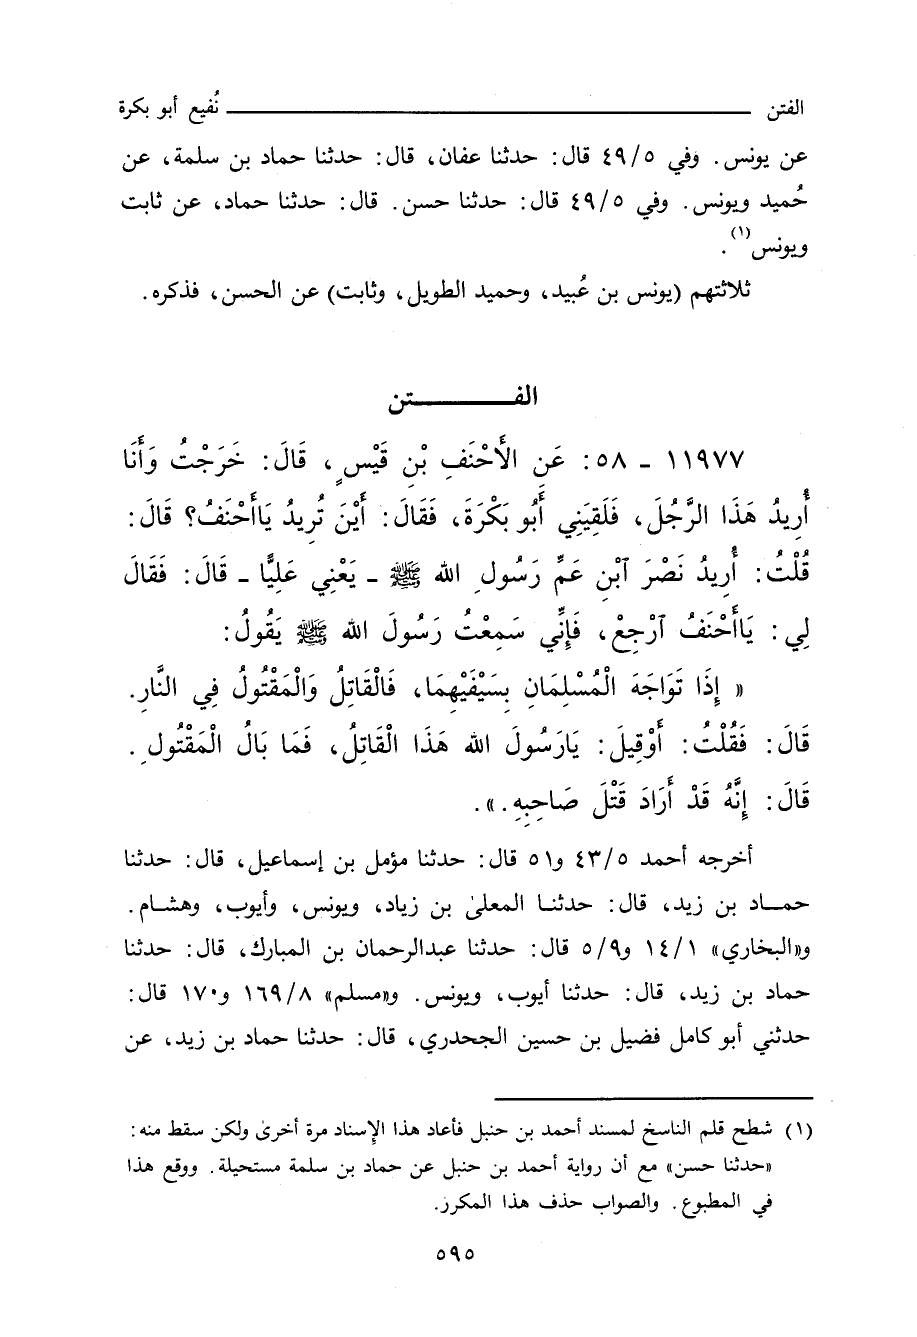 الفتن ــــــــــــــــــــ نُفيع أبو بكرة
عن يونس. وفي ٤٩/٥ قال: حدثنا عفان، قال: حدثنا حماد بن سلمة، عن
حُميد ويونس. وفي ٤٩/٥ قال: حدثنا حسن. قال: حدثنا حماد، عن ثابت
ويونس(١).
ثلاثتهم (يونس بن عُبيد، وحميد الطويل، وثابت) عن الحسن، فذكره.
الفـــــــتن
١١٩٧٧ ـ ٥٨: عَنِ الأَحْنَفِ بْنِ قَيْسٍ، قَالَ: خَرَجْتُ وَأَنَا
أُرِيدُ هَذَا الرَّجُلَ، فَلَقِيَنِي أَبُو بَكْرَةَ، فَقَالَ: أَيْنَ تُرِيدُ يَاأَحْنَفُ؟ قَالَ:
قُلْتُ: أُرِيدُ نَصْرَ ٱبْنِ عَمِّ رَسُولِ الله ﷺ ـ يَعْنِي عَلِيًّا ـ قَالَ: فَقَالَ
لِي: يَاأَحْنَفُ ٱرْجِعْ، فَإِنِّي سَمِعْتُ رَسُولَ الله ﷺ يَقُولُ:
« إِذَا تَوَاجَهَ الْمُسْلِمَانِ بِسَيْفَيْهِمَا، فَالْقَاتِلُ وَالْمَقْتُولُ فِي النَّارِ.
قَالَ: فَقُلْتُ: أَوْقِيلَ: يَارَسُولَ الله هَذَا الْقَاتِلُ، فَمَا بَالُ الْمَقْتُولِ.
قَالَ: إِنَّهُ قَدْ أَرَادَ قَتْلَ صَاحِبِهِ.».
أخرجه أحمد ٤٣/٥ و٥١ قال: حدثنا مؤمل بن إسماعيل، قال: حدثنا
حمـاد بن زيد، قال: حدثنـا المعلىٰ بن زياد، ويونس، وأيوب، وهشـام.
و«البخاري» ١٤/١ و٥/٩ قال: حدثنا عبدالرحمان بن المبارك، قال: حدثنا
حماد بن زيد، قال: حدثنا أيوب، ويونس. و«مسلم» ١٦٩/٨ و١٧٠ قال:
حدثني أبو كامل فضيل بن حسين الجحدري، قال: حدثنا حماد بن زيد، عن
(١) شطح قلم الناسخ لمسند أحمد بن حنبل فأعاد هذا الإِسناد مرة أخرىٰ ولكن سقط منه:
«حدثنا حسن» مع أن رواية أحمد بن حنبل عن حماد بن سلمة مستحيلة. ووقع هذا
في المطبوع. والصواب حذف هذا المكرر.
٥٩٥